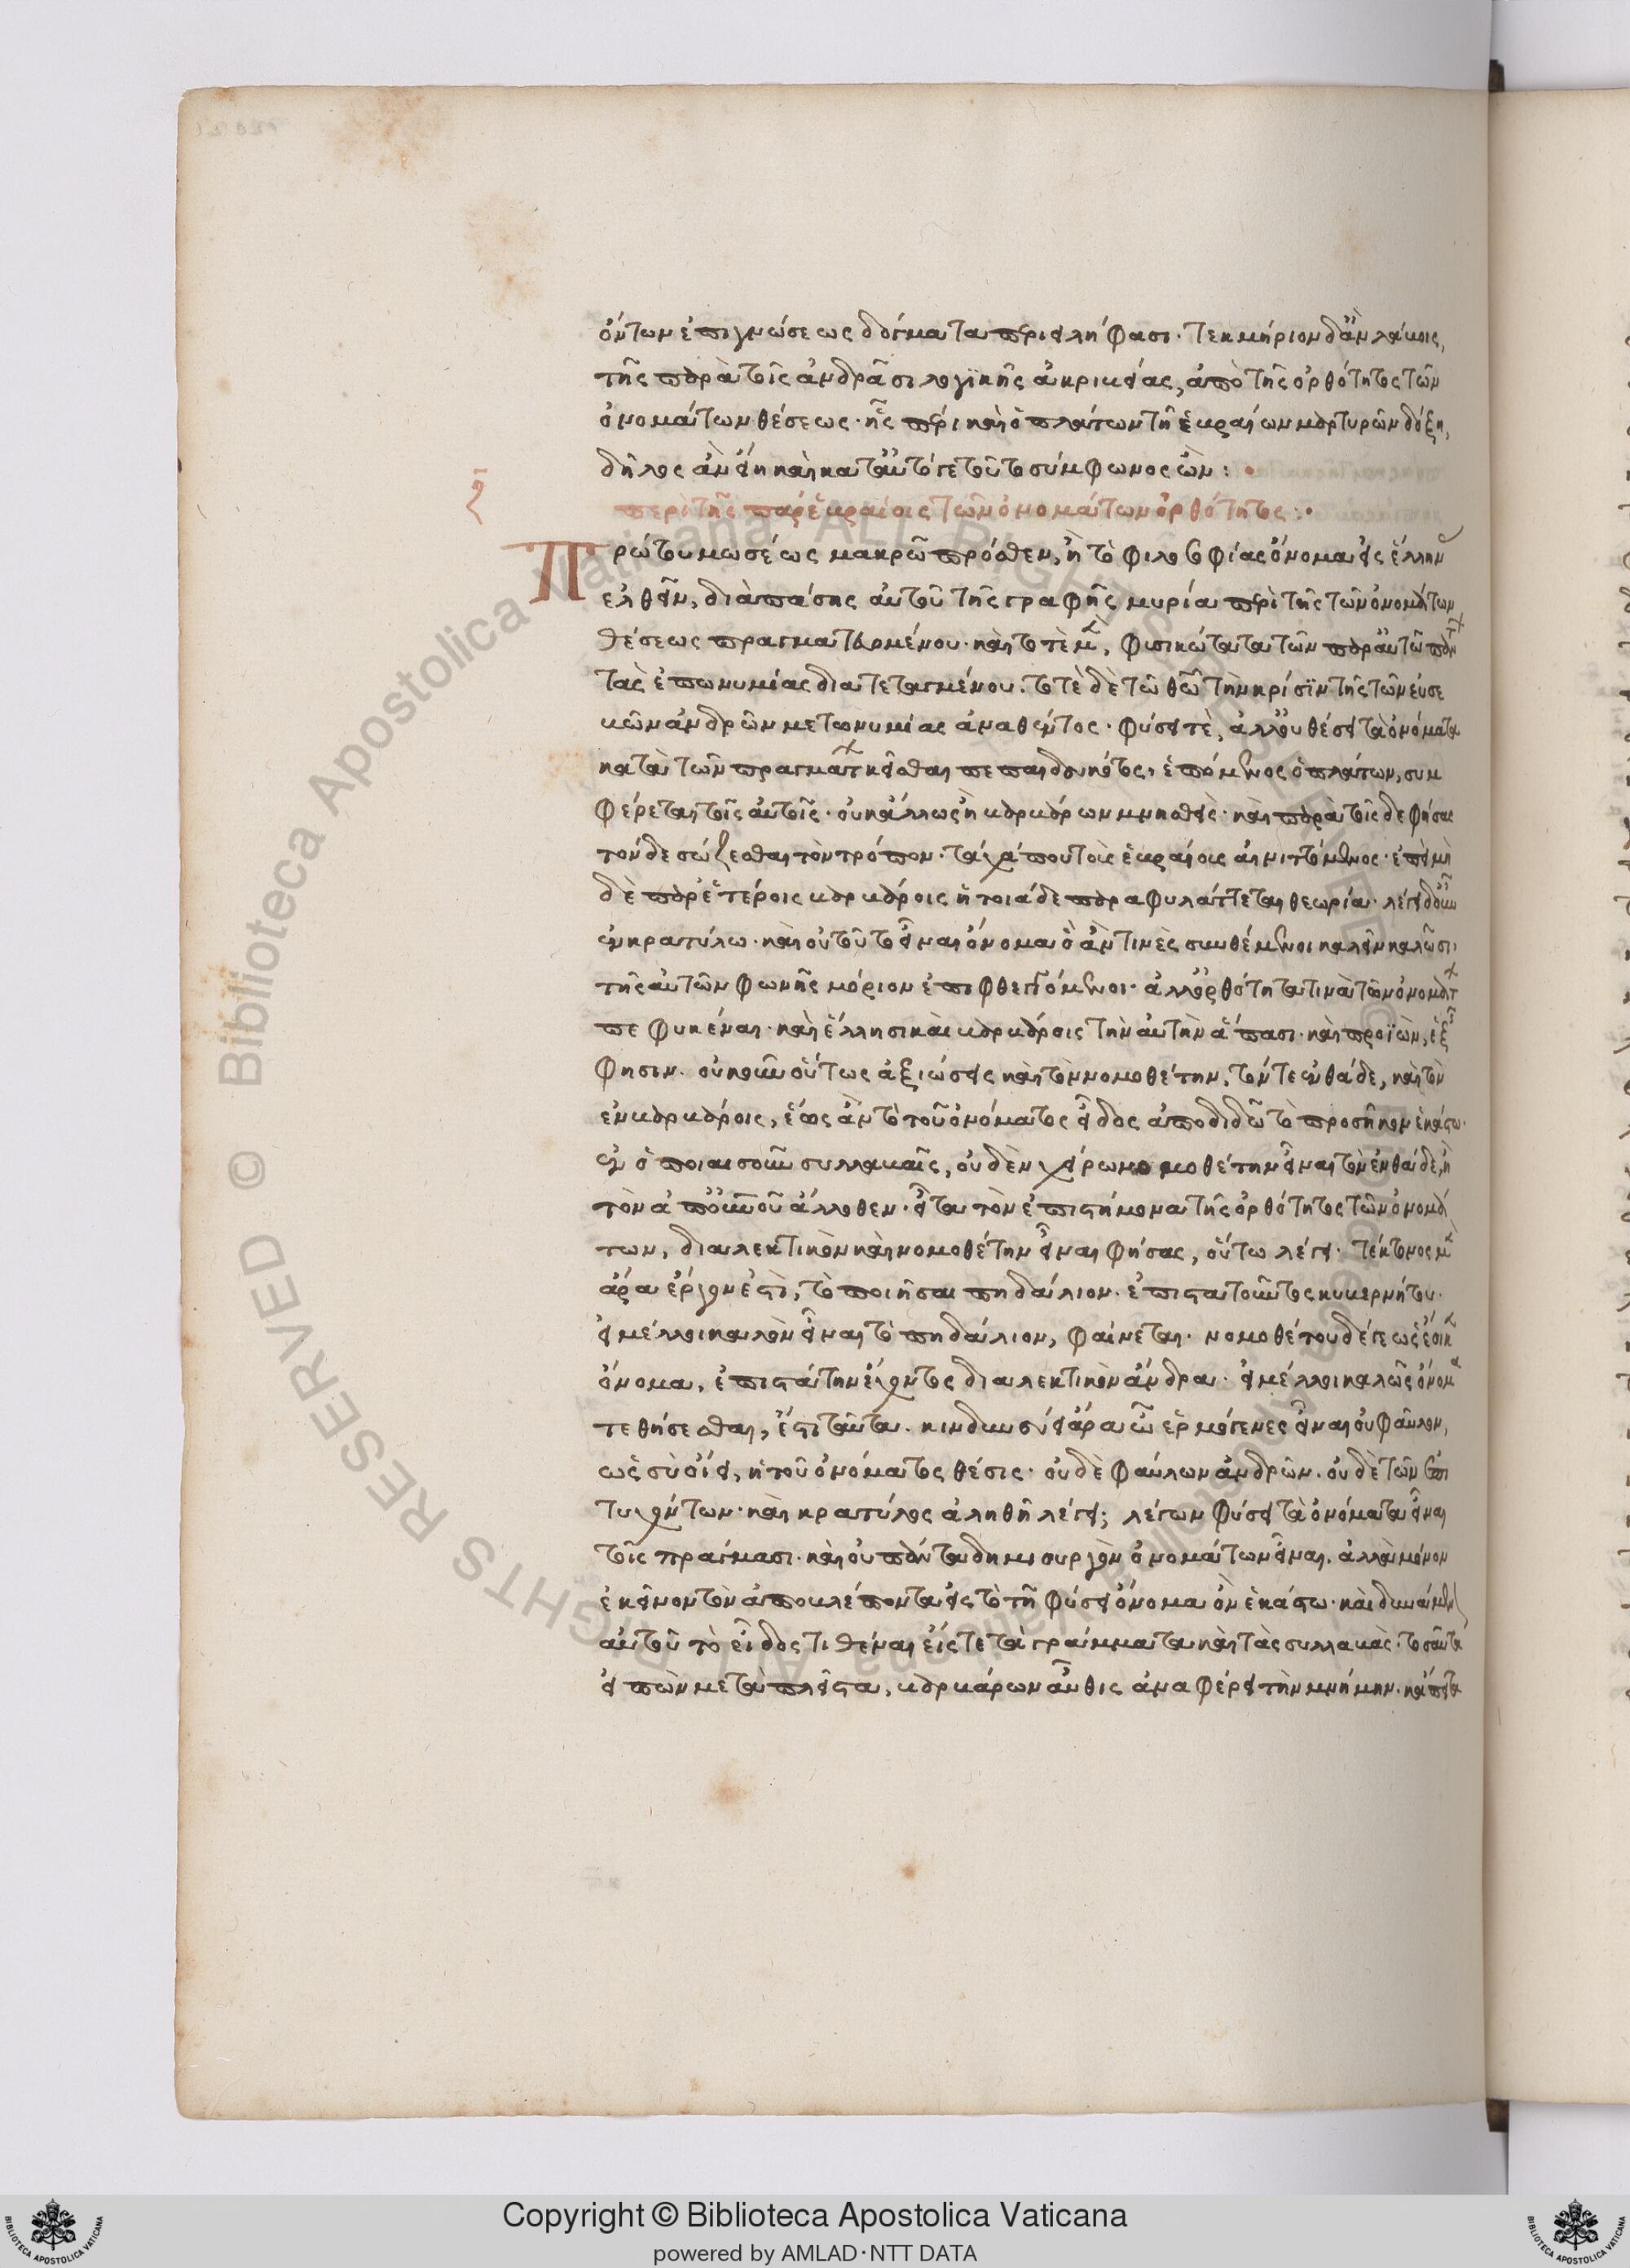 ὄντων ἐπιγνώσεως δόγματα περιειλήφασι· τεκμήριον δ' ἂν λάβοις,
τῆς παρὰ τοῖς ἀνδράσι λογϊκῆς ἀκριβείας, ἀπὸ τῆς ὀρθότητος τῶν
ὀνομάτων θέσεως· ἧς πέρι καὶ ὁ πλάτων τῆ ἑβραίων μαρτυρῶν δόξη,
δῆλος ἂν εἴη καὶ κατ' αὐτό γε τοῦτο σύμφωνος ὤν:
ς
περὶ τῆς παρ' ἑβραίοις τῶν ὀνομάτων ὀρθότητος:
Πρώτου μωσέως μακρῶ πρόσθεν, ἢ τὸ φιλοσοφίας ὄνομα εἰς ἕλλην
ελθεῖν, διὰ πάσης αὐτοῦ τῆς γραφῆς μυρία περὶ τῆς τῶν ὀνομάτων
θέσεως πραγματευομένου· καὶ τοτὲ μὲν, φυσικώτατα τῶν παρ' αὐτῶ πάντων
τὰς ἐπωνυμίας διατεταγμένου· τοτὲ δὲ τῶ θεῶ τὴν κρίσϊν τῆς τῶν εὐσε
βῶν ἀνδρῶν μετωνυμίας ἀναθέντος· φύσει τὲ, ἀλλ' οὐ θέσει τὰ ὀνόματα
κατὰ τῶν πραγμάτων κεῖσθαι πεπαιδευκότος, ἑπόμενος ὁ πλάτων, συμ
φέρεται τοῖς αὐτοῖς· οὐκ ἄλλως ἢ βαρβάρων μνησθεὶς· καὶ παρὰ τοῖσδε φήσας
τόνδε σώζεσθαι τὸν τρόπον· τάχά που τοὺς ἑβραίους αἰνιττόμενος· ἐπεὶ μὴ
δὲ παρ' ἑτέροις βαρβάροις ἡ τοιάδε παραφυλάττεται θεωρία· λέγει δ' οὖν
ἐν κρατύλω· καὶ οὐ τοῦτο εἶναι ὄνομα ὃ ἄν τινὲς συνθέμενοι καλεῖν καλῶσι,
τῆς αὐτῶν φωνῆς μόριον ἐπιφθεγγόμενοι· ἀλλ' ὀρθότητα τινὰ τῶν ὀνομάτων
πεφυκέναι· καὶ ἕλλησι καὶ βαρβάροις τὴν αὐτὴν ἅπασι· καὶ προϊὼν, ἑξῆς
φησιν· οὐκοῦν οὕτως ἀξιώσεις καὶ τὸν νομοθέτην, τόν τε ἐνθάδε, καὶ τὸν
ἐν βαρβάροις, ἕως ἂν τὸ τοῦ ὀνόματος εἶδος ἀποδιδῶ τὸ προσῆκον ἑκάστω·
ἐν ὁποιαισοῦν συλλαβαῖς, οὐδὲν χείρω νομοθέτην εἶναι τὸν ἐνθάδε, ἢ
τὸν ἁπουοῦν ἄλλοθεν· εἶτα τὸν ἐπιστήμονα τῆς ὀρθότητος τῶν ὀνομά
των, διαλεκτικὸν καὶ νομοθέτην εἶναι φήσας, οὕτω λέγει· τέκτονος μὲν
ἄρα ἔργον ἐστὶ, τὸ ποιῆσαι πηδάλιον· ἐπιστατοῦντος κυβερνήτου·
εἰ μέλλοι καλὸν εἶναι τὸ πηδάλιον, φαίνεται· νομοθέτου δέ γε ὡς ἔοικεν
ὄνομα, ἐπιστάτην ἔχοντος διαλεκτικὸν ἄνδρα· εἰ μέλλοι καλῶς ὄνομα
τεθήσεσθαι, ἔστι ταῦτα· κινδυνεύει ἄρα ὦ ἑρμόγενες εἶναι οὐ φαῦλον,
ὡς σὺ οἴει, ἡ τοῦ ὀνόματος θέσις· οὐδὲ φαύλων ἀνδρῶν· οὐδὲ τῶν ἐπι
τυχόντων· καὶ κρατύλος ἀληθῆ λέγει; λέγων φύσει τὰ ὀνόματα εἶναι
τοῖς πράγμασι· καὶ οὐ πάντα δημιουργὸν ὀνομάτων εἶναι· ἀλλὰ μόνον
ἐκεῖνον τὸν ἀποβλέποντα εἰς τὸ τῆ φύσει ὄνομα ὂν ἑκάστω· καὶ δυνάμενον
αὐτοῦ τὸ εἶδος τιθέναι εἴς τε τὰ γράμματα καὶ τὰς συλλαβὰς· τοσαῦτα
εἰπὼν μετὰ πλεῖστα, βαρβάρων αὖθις ἀναφέρει τὴν μνήμην· κἄπειτα
Copyright © Biblioteca Apostolica Vaticana
powered by AMLAD·NTT DATA